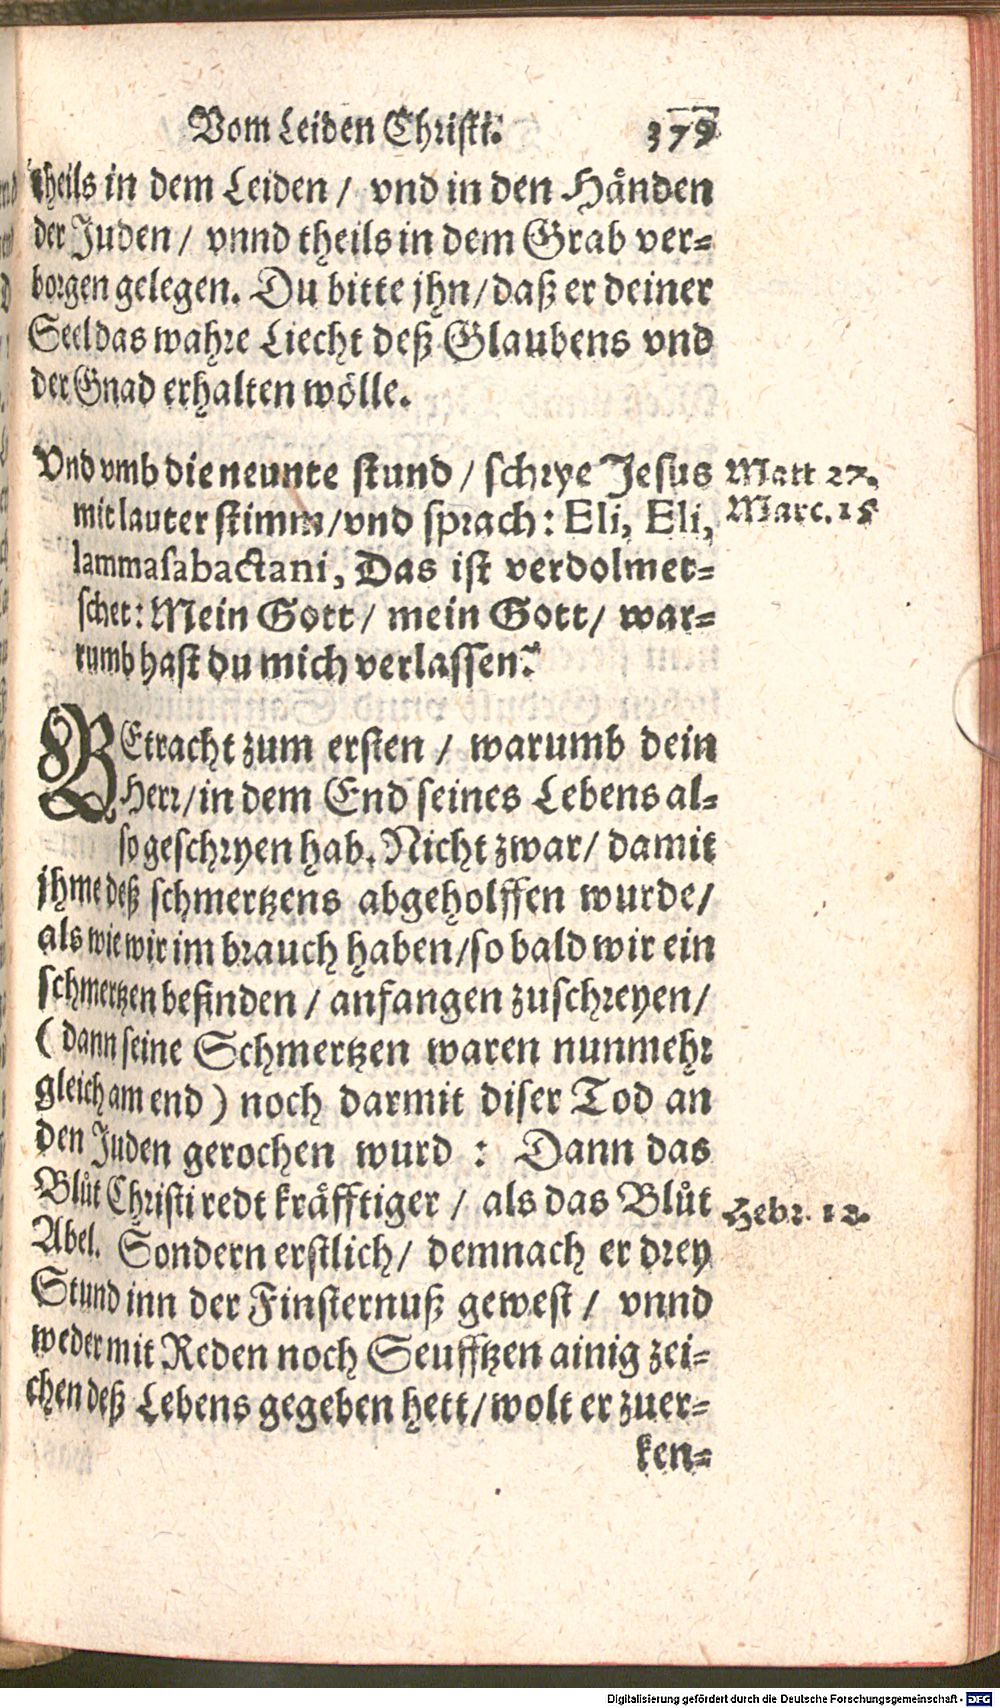 Vom Leiden Christi. 379
theils in dem Leiden / vnd in den Händen
der Juden / vnnd theils in dem Grab ver-
borgen gelegen. Du bitte jhn / daß er deiner
Seel das wahre Liecht deß Glaubens vnd
der Gnad erhalten wölle.
Vnd vmb die neunte stund / schrye Jesus
Matt 27.
mit lauter stimm / vnd sprach: Eli, Eli,
Marc. 15
lammasabactani, Das ist verdolmet-
schet: Mein Gott / mein Gott / war-
rumb hast du mich verlassen?
BEtracht zum ersten / warumb dein
Herr / in dem End seines Lebens al-
so geschryen hab. Nicht zwar / damit
jhme deß schmertzens abgeholffen wurde /
als wie wir im brauch haben / so bald wir ein
schmertzen befinden / anfangen zuschreyen /
( dann seine Schmertzen waren nunmehr
gleich am end ) noch darmit diser Tod an
den Juden gerochen wurd : Dann das
Blůt Christi redt kräfftiger / als das Blůt
Hebr. 12.
Abel. Sondern erstlich / demnach er drey
Stund inn der Finsternuß gewest / vnnd
weder mit Reden noch Seufftzen ainig zei-
chen deß Lebens gegeben hett / wolt er zuer-
ken-
Digitalisierung gefördert durch die Deutsche Forschungsgemeinschaft - DFG